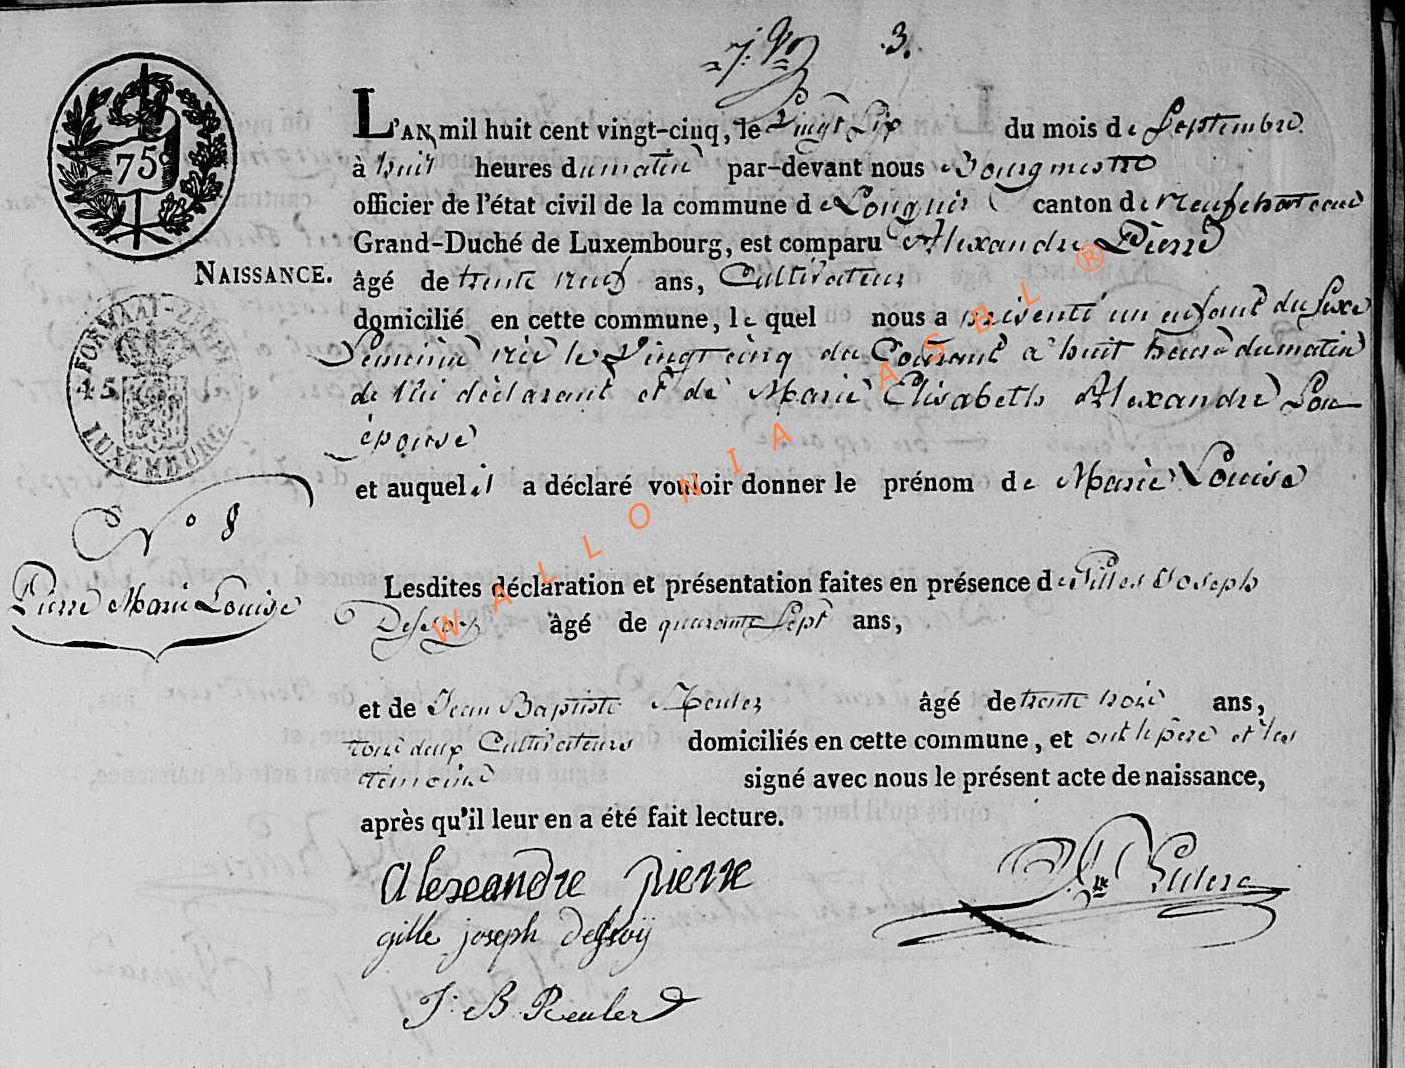 3.
75c
L'AN mil huit cent vingt-cinq, le Vingt Six du mois de Septembre
à huit heures du matin par-devant nous Bourgmestre
officier de l'état civil de la commune de Longlier canton de Neufchateau
Grand-Duché de Luxembourg, est comparu Alexandre Pierre
NAISSANCE.
âgé de trente neuf ans, Cultivateur
domicilié en cette commune, le quel nous a présenté un enfant du sexe
féminin née le Vingt cinq du Courant a huit heures du matin
de lui déclarant et de Marie Elisabeth Alexandre Son
épouse
FORMAAT-ZEGEL
45
LUXEMBURG
et auquel il a déclaré vouloir donner le prénom de Marie Louise
N° 8
Pierre Marie Louise
Lesdites déclaration et présentation faites en présence de Gilles Joseph
âgé de quarante Sept ans,
et de Jean Baptiste Reuler âgé de trente trois ans,
tous deux Cultivateurs domiciliés en cette commune, et ont le père et les
témoins signé avec nous le présent acte de naissance,
après qu'il leur en a été fait lecture.
alexandre pierre
gille joseph
J: B Reuler
WALLONIA ASBL ®